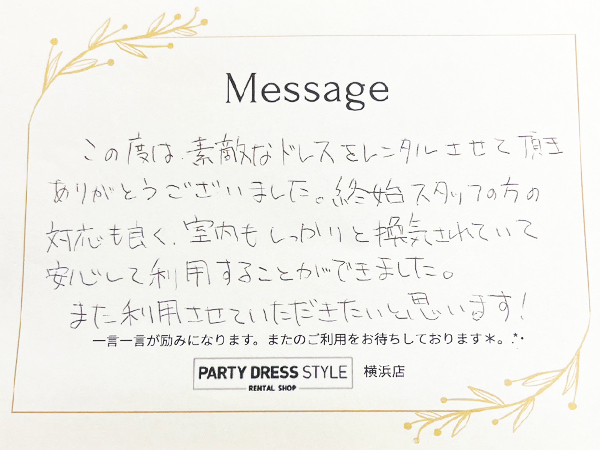 Message
この度は、素敵なドレスをレンタルさせて頂き
ありがとうございました。終始スタッフの方の
対応も良く、室内もしっかりと換気されていて
安心して利用することができました。
また利用させていただきたいと思います！
一言一言が励みになります。またのご利用をお待ちしております＊。.*・
PARTY DRESS STYLE 横浜店
RENTAL SHOP